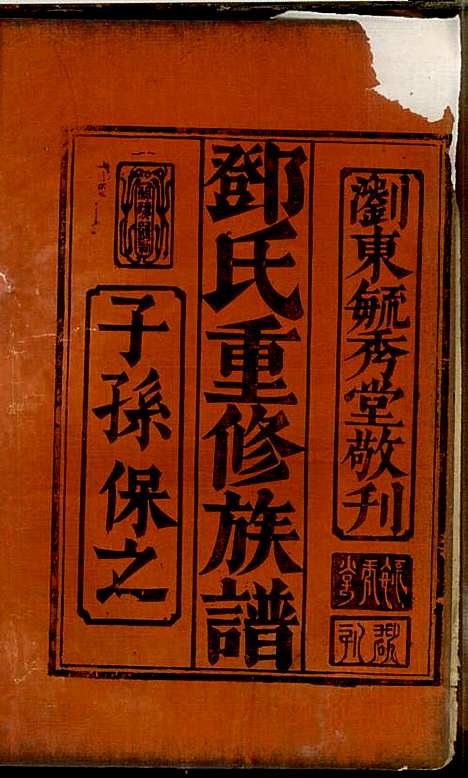 劉東毓秀堂敬刊
毓秀堂
鄧氏重修族譜
子孫保之